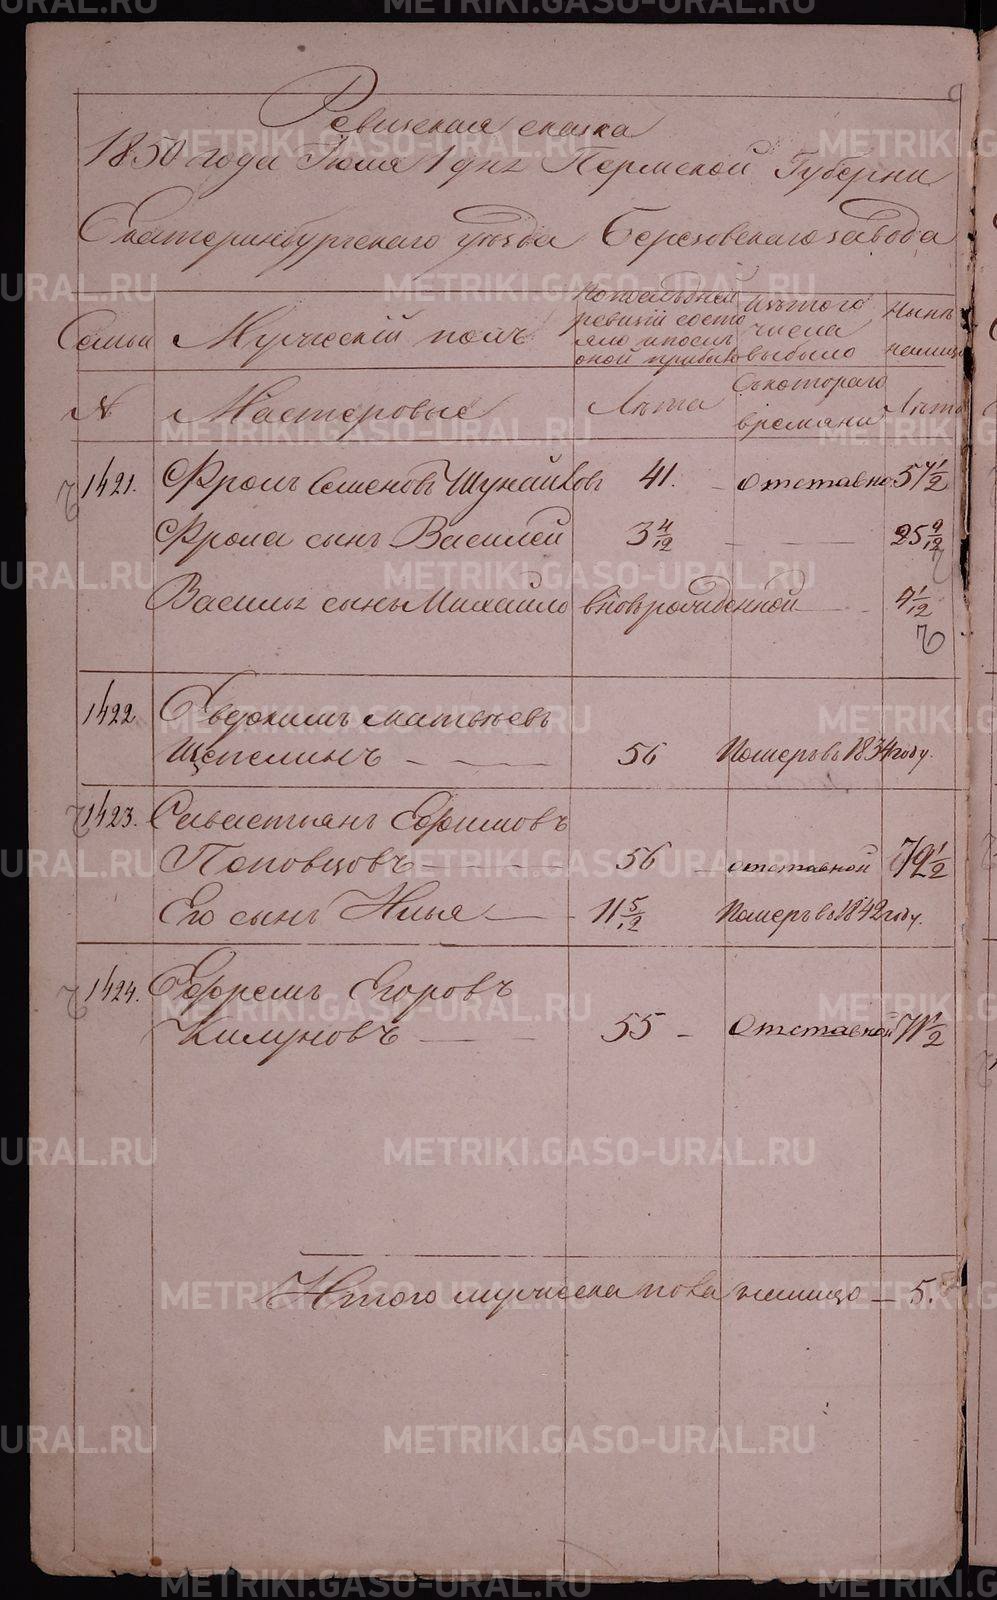 Ревизская сказка
1850 года Июля 1 дня Пермской Губернии
Екатеринбургскаго уезда Березовскаго завода
Семьи
Мужеский полъ
По последней ревизіи состояло и после оной прибыло
Изъ того числа выбыло
Ныне на лицо
№
Мастеровые
Лета
Съ котораго времяни
Лета
1421. Фролъ Семеновъ Шунайловъ 41. — отставно 57 1/2
Фрола сынъ Василей 3 4/12 — — 25 9/12
Василья сынъ Михайло вновь рожденной — 4 1/12
1422 Евдокимъ Матвеевъ
Щепелинъ — — — 56 Померъ въ 1834 году.
1423. Севастьянъ Ефимовъ
Поповцовъ — — — 56 — отставной 72 1/2
Его сынъ Илья — — 11 5/12 Померъ въ 1842 году.
1424. Ефремъ Егоровъ
— — 55 — Отставной 71 1/2
Итого мужеска пола налицо — 5.
METRIKI.GASO-URAL.RU